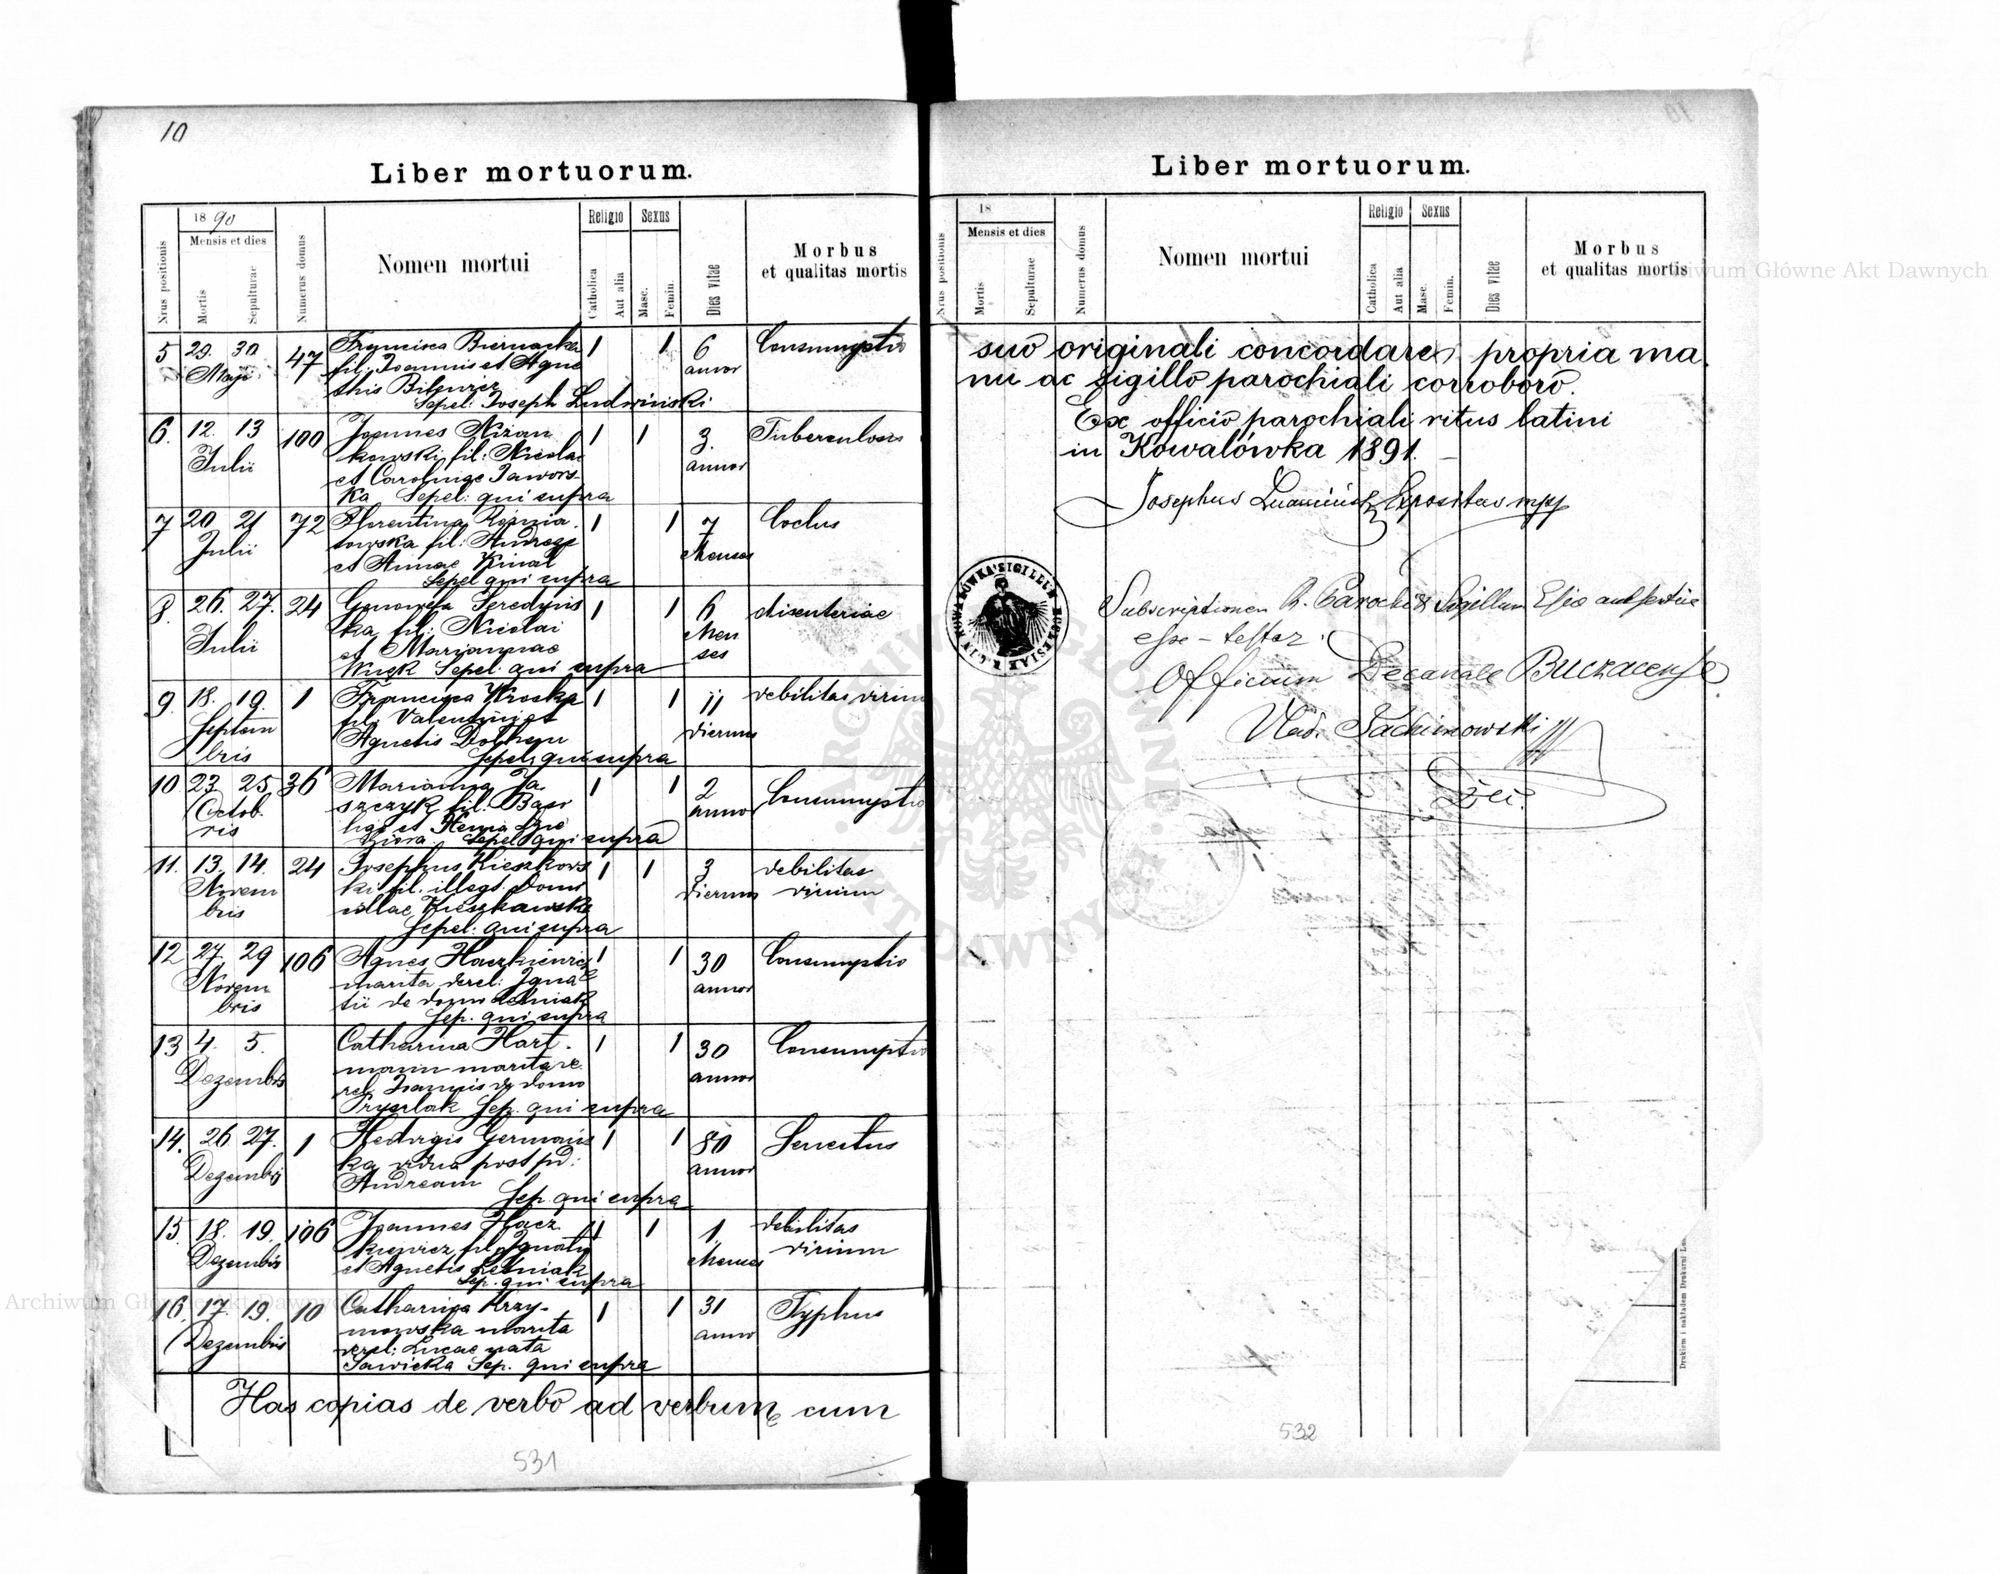 10
Liber mortuorum.
Nrus positionis
1890
Mensis et dies
Mortis
Sepulturae
Numerus domus
Nomen mortui
Religio
Catholica
Aut alia
Sexus
Masc.
Femin.
Dies vitae
Morbus
et qualitas mortis
5 29. 30 47 Francisca Biernacka 1 1 6 Consumptio
Maji fil. Joannis et Agne annor
this
Sepel: Joseph Ludwiński
6. 12. 13 100 Joannes Niżan 1 1 3. Tuberculosis
Julii kowski fil: Nicolai annor
et Carolinae Jawors-
ka Sepel: qui supra
7 20 21 72 Florentina Roznia 1 1 7 Coclus
Julii towska fil: Andreae Menses
et Annae Kinal
Sepel qui supra
8. 26. 27. 24 Genowefa Seredyns 1 1 6 disenteriae
Julii ka fil: Nicolai Men
et Mariannae ses
Sepel. qui supra
9. 18. 19. 1 Francisca Wroska 1 1 11 debilitas virium
Septem fil. Valentini et dierum
bris Agnetis
Sepel. qui supra
10 23 25 36 Marianna Ja 1 1 2 Consumptio
Octob. szczyk fil. Basi annor
ris lii et
Sepel qui supra
11. 13. 14. 24 Josephus Kieszkows 1 1 3 debilitas
Novem ki fil. illegt. Domi dierum virium
bris cellae Kieszkowska
Sepel: qui supra
12 27. 29 106 Agnes Haczkiewicz 1 1 30 Consumptio
Novem marita derel: Igna annor
bris tii de domo Leśniak
Sep. qui supra
13 4. 5. Catharina Hart- 1 1 30 Consumptio
Dezembris mann marita de annor
rel. Joannis de domo
Sep. qui supra
14. 26 27. 1 Hedvigis Germańs 1 1 80 Senectus
Dezembris ka vidua post pd: annor
Andream
Sep. qui supra
15 18. 19. 106 Joannes Hacz 1 1 1 debilitas
Dezembris kiewicz fil. Ignatii Menses virium
et Agnetis Leśniak
Sep. qui supra
16. 17. 19. 10 Catharina Krzy- 1 1 31 Typhus
Dezembris mowska marita annor
derel: Lucae nata
Sawicka Sep. qui supra
Has copias de verbo ad verbum cum
531
Liber mortuorum.
Nrus positionis
18
Mensis et dies
Mortis
Sepulturae
Numerus domus
Nomen mortui
Religio
Catholica
Aut alia
Sexus
Masc.
Femin.
Dies vitae
Morbus
et qualitas mortis
suo originali concordare, propria ma
nu ac sigillo parochiali corroboro.
Ex officio parochiali ritus latini
in Kowalówka 1891.
Josephus Expositus mpp
Subscriptionem R. Parochi & Sigillum Eccl authentica
esse - testor.
Officium Decanale Buczacense
Vlad. Jachimowski
Dec.
532
Archiwum Główne Akt Dawnych
Archiwum Główne Akt Dawnych
ARCHIWUM GŁÓWNE AKT DAWNYCH